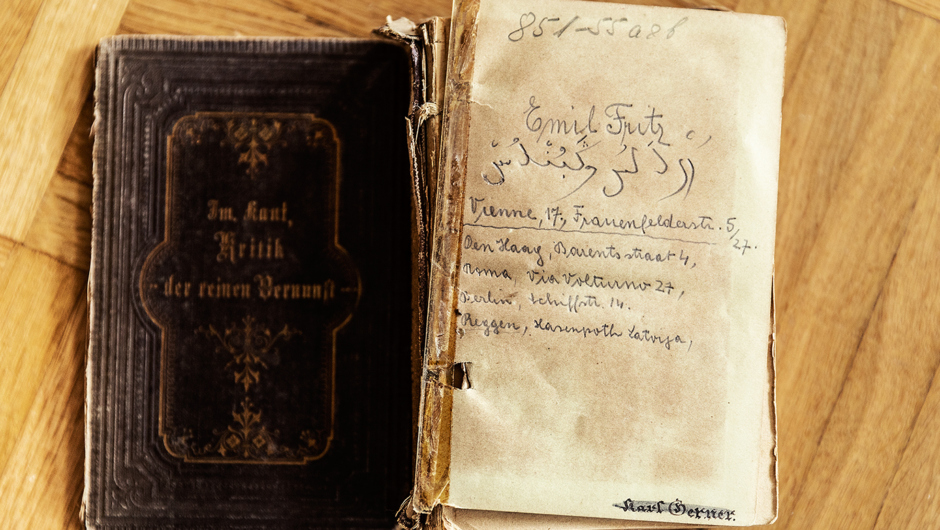 Im. Kant,
Kritik
der reinen Vernunft
851-55a86
Emil Fritz
Vienne, 17, Frauenfelderstr. 5/27.
Den Haag, Barentsstraat 4,
Roma, Via Volturno 27,
Berlin, Schiffstr. 14.
Reggen, Hasenpoth Latvija,
Karl Gerner.